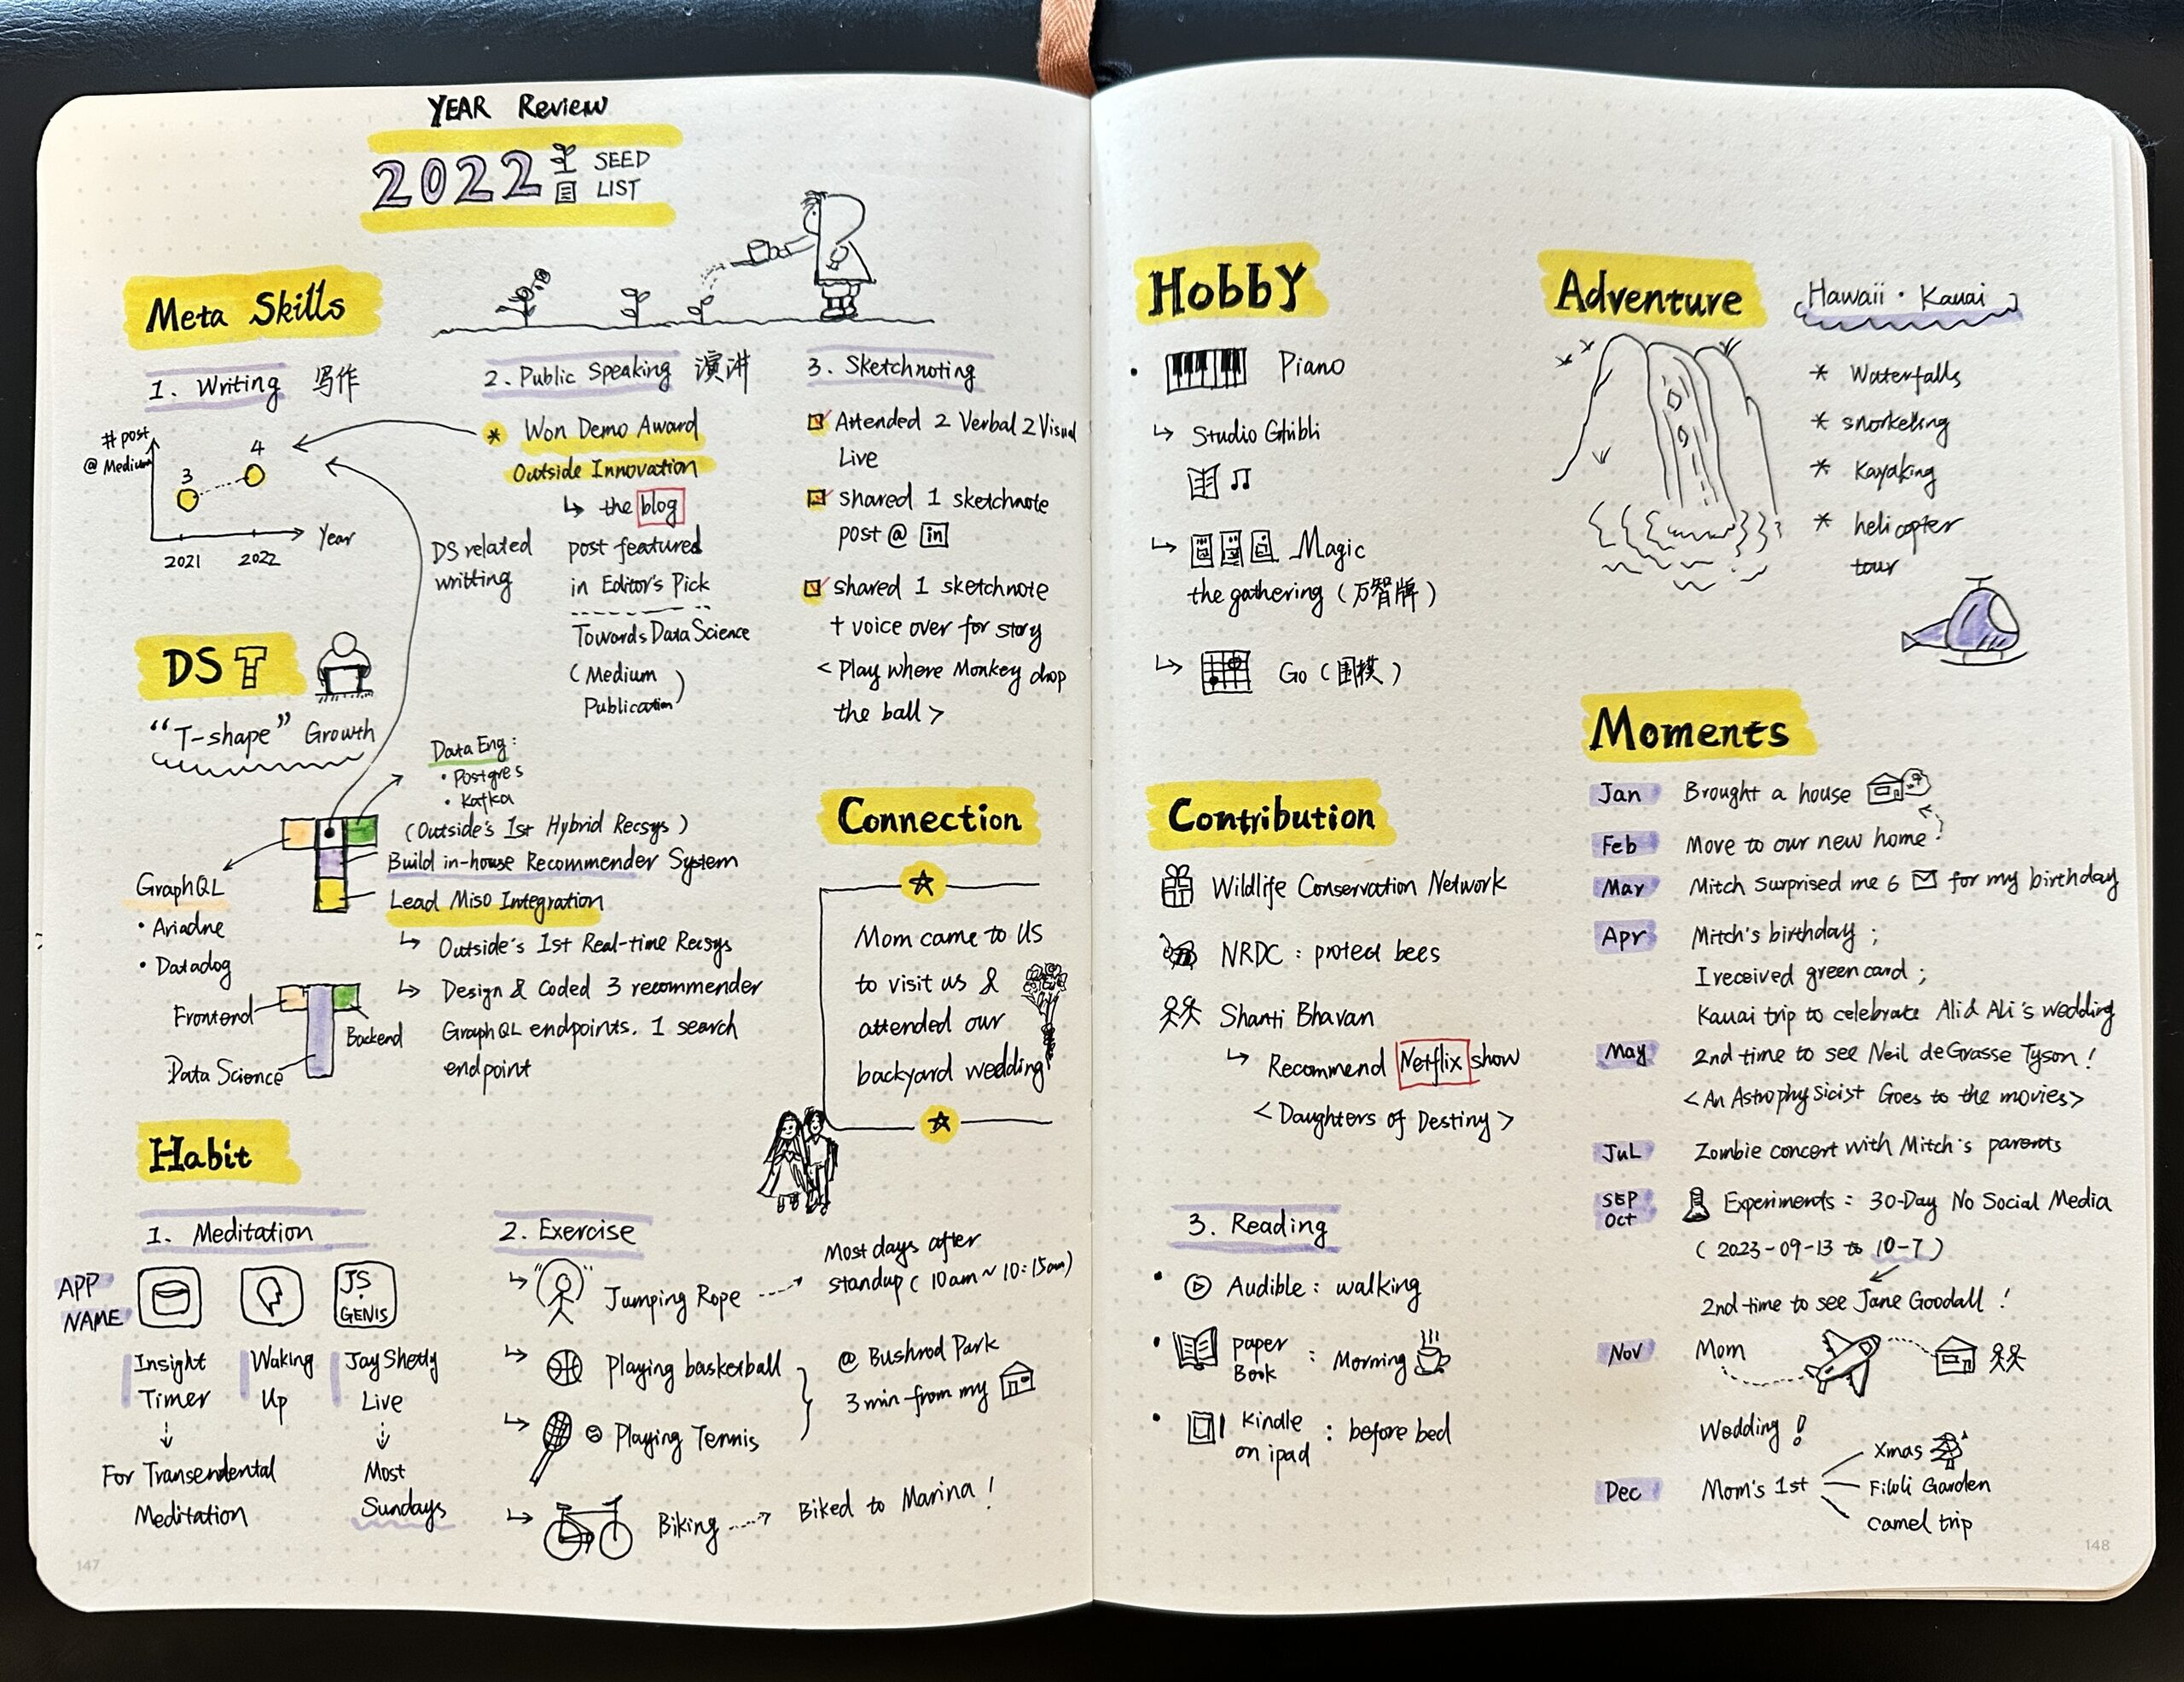 YEAR Review
2022
SEED
LIST
Meta Skills
1. Writing 写作
# post
@ Medium
3
4
2021
2022
Year
2. Public Speaking 演讲
* Won Demo Award
Outside Innovation
↳ the blog
post featured
in Editor's Pick
Towards Data Science
(Medium
Publication)
DS related
writting
3. Sketchnoting
Attended 2 Verbal 2 Visual
Live
shared 1 sketchnote
post @ in
shared 1 sketchnote
+ voice over for story
< Play where Monkey drop
the ball >
DS T
"T-shape" Growth
Data Eng:
• Postgres
• Kafka
(Outside's 1st Hybrid Recsys)
Build in-house Recommender System
Lead Miso Integration
↳ Outside's 1st Real-time Recsys
↳ Design & Coded 3 recommender
GraphQL endpoints. 1 search
endpoint
GraphQL
• Ariadne
• Datadog
Frontend
Backend
Data Science
Connection
Mom came to US
to visit us &
attended our
backyard wedding
Habit
1. Meditation
APP
NAME
JS
GENIS
Insight
Timer
Waking
Up
Jay Shetty
Live
For Transendental
Meditation
Most
Sundays
2. Exercise
↳ Jumping Rope
Most days after
standup (10am ~ 10:15am)
↳ Playing basketball
↳ Playing Tennis
@ Bushrod Park
3 min from my
↳ Biking
Biked to Marina!
147
Hobby
• Piano
↳ Studio Ghibli
↳ Magic
the gathering (万智牌)
↳ Go (围棋)
Adventure
Hawaii · Kauai
* Waterfalls
* snorkeling
* Kayaking
* helicopter
tour
Contribution
Wildlife Conservation Network
NRDC: protect bees
Shanti Bhavan
↳ Recommend Netflix show
< Daughters of Destiny >
3. Reading
• Audible: walking
• paper
Book : Morning
• Kindle
on ipad : before bed
Moments
Jan Brought a house
Feb Move to our new home!
Mar Mitch Surprised me 6 for my birthday
Apr Mitch's birthday;
I received green card;
Kauai trip to celebrate Ali & Ali's wedding
May 2nd time to see Neil deGrasse Tyson!
< An Astrophysicist Goes to the movies>
JuL Zombie concert with Mitch's parents
SEP
Oct
Experiments: 30-Day No Social Media
(2023-09-13 to 10-7)
2nd time to see Jane Goodall!
Nov Mom
Wedding!
Dec Mom's 1st
Xmas
Filoli Garden
Camel trip
148